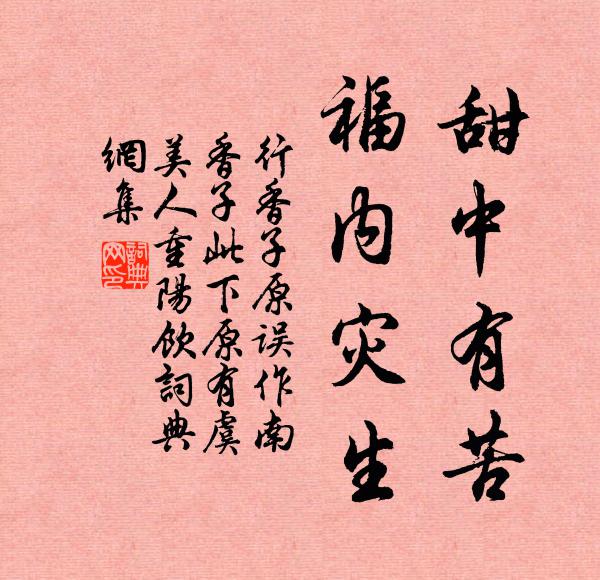 甜中有苦
福内灾生
行香子原误作南
香子此下原有虞
美人重陽飲詞典
網集
詞典網印